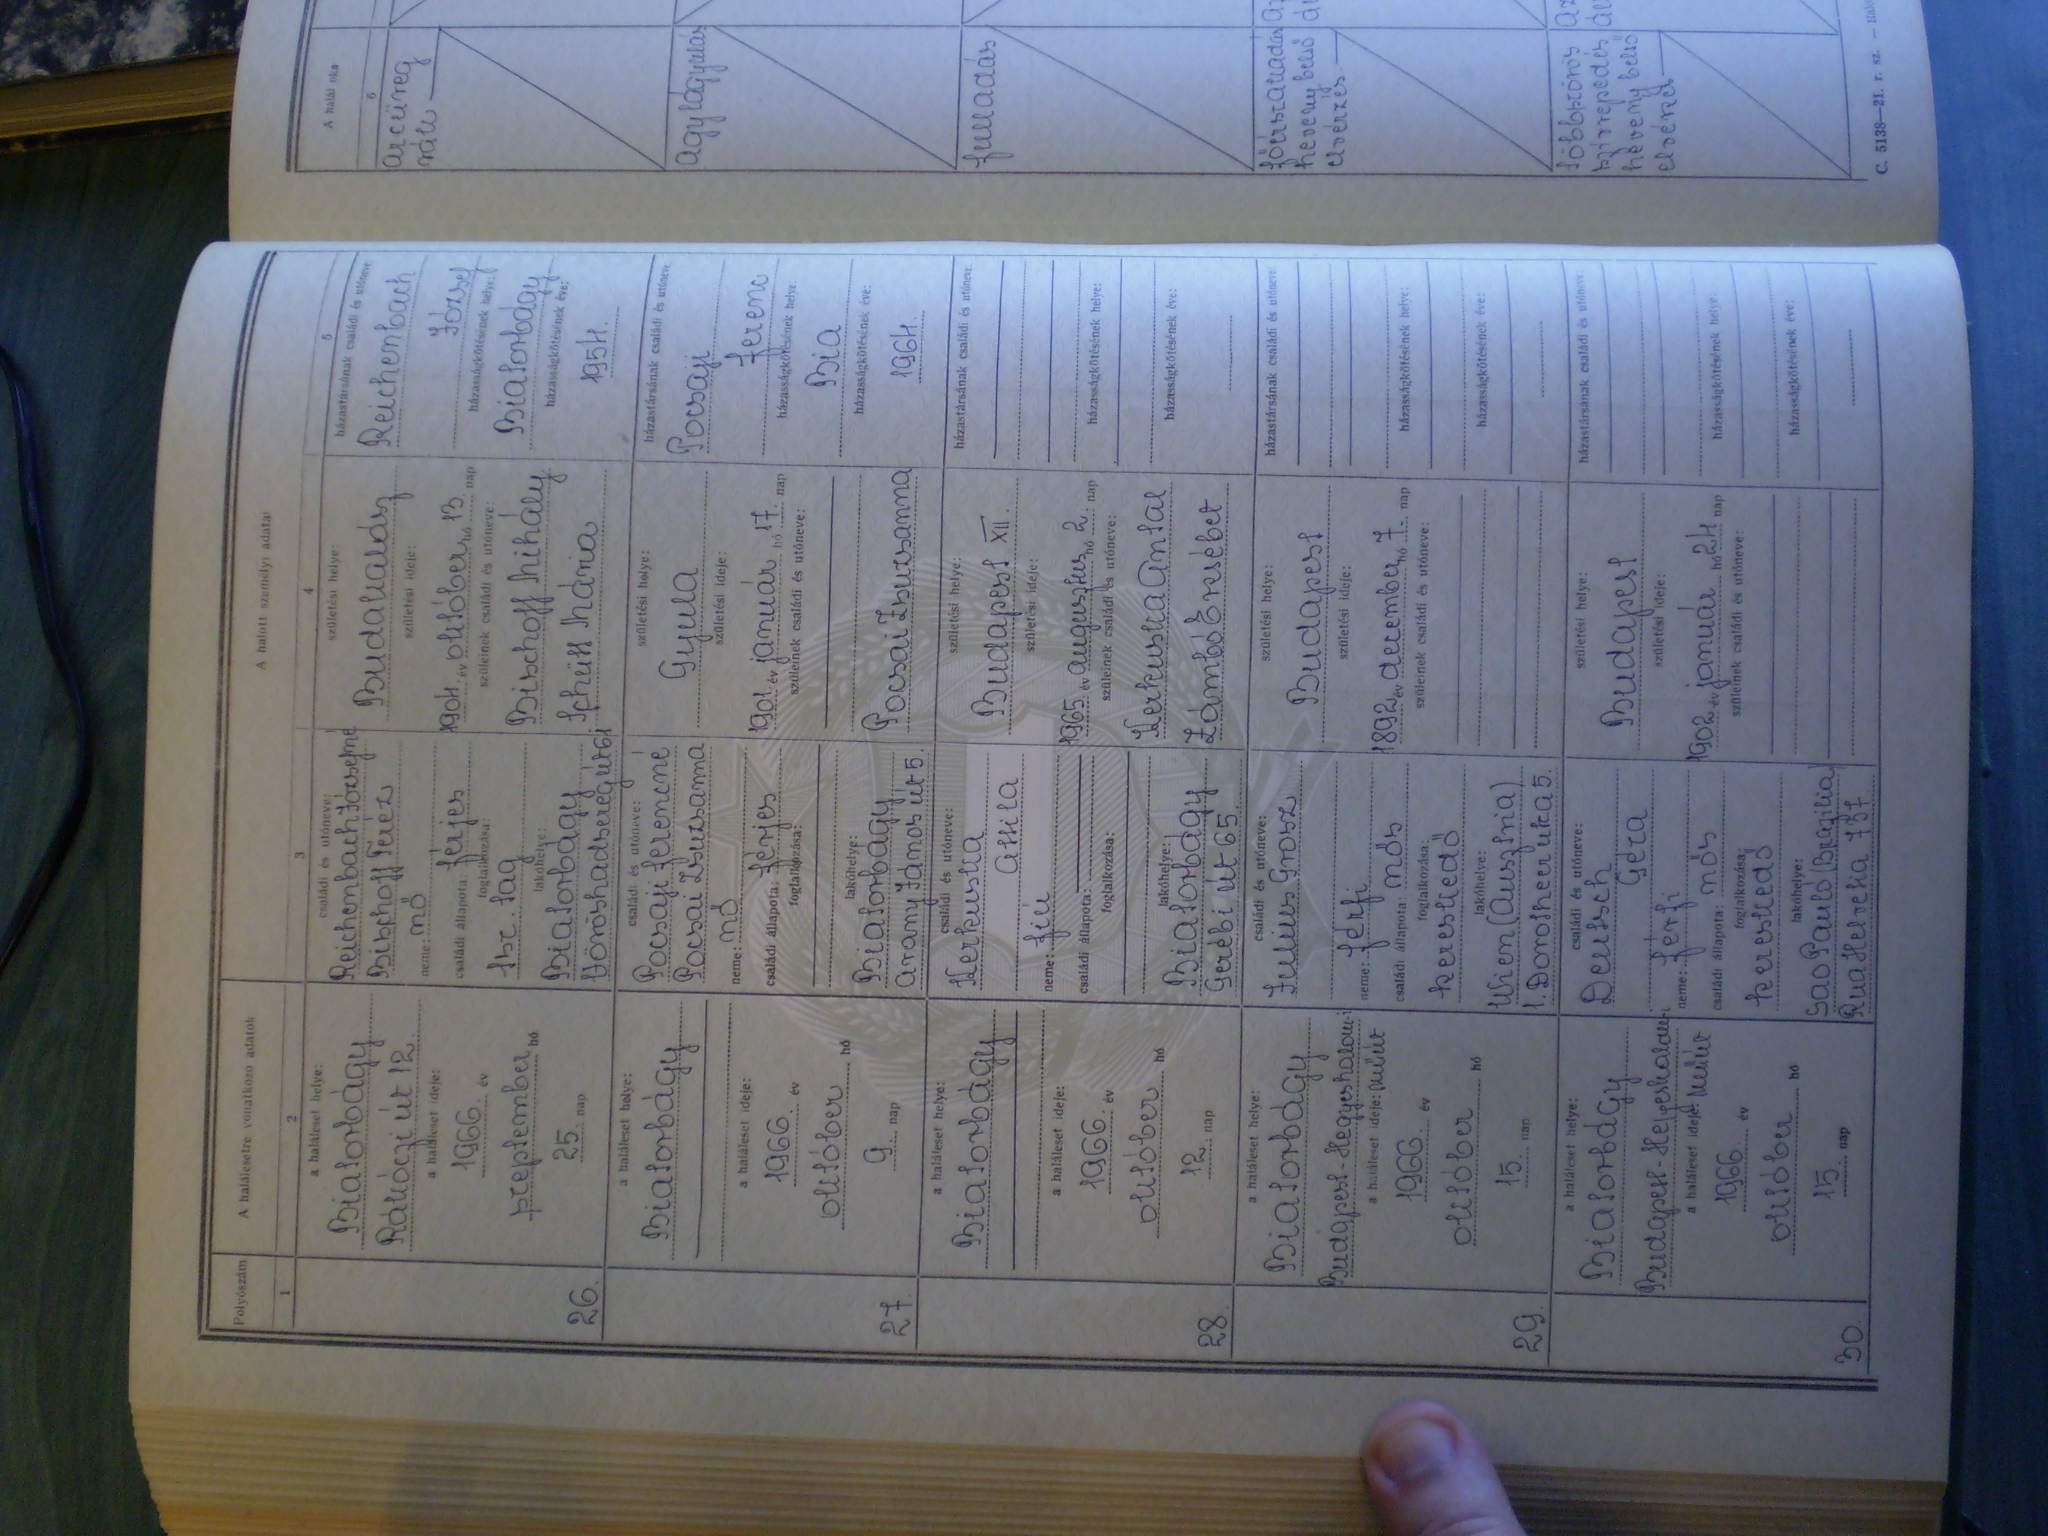 A halálesetre vonatkozó adatok
A halott személyi adatai
Folyószám
1
2
3
4
5
26.
a haláleset helye:
Biatorbágy
Rákóczi út 12.
a haláleset ideje:
1966. év
szeptember hó
25. nap
családi és utóneve:
Reichenbach Józsefné
Bischoff Teréz
neme: nő
családi állapota: férjes
foglalkozása:
tsz. tag
lakóhelye:
Biatorbágy
Vöröshadsereg út 61
születési helye:
Budakalász
születési ideje:
1904. év október hó 13. nap
szüleinek családi és utóneve:
Bischoff Mihály
Mária
házastársának családi és utóneve:
Reichenbach
József
házasságkötésének helye:
Biatorbágy
házasságkötésének éve:
1954.
27.
a haláleset helye:
Biatorbágy
a haláleset ideje:
1966. év
október hó
9. nap
családi és utóneve:
Pocsaji Ferencné
Pocsai Zsuzsanna
neme: nő
családi állapota: férjes
foglalkozása:
lakóhelye:
Biatorbágy
Arany János út 5.
születési helye:
Gyula
születési ideje:
1901. év január hó 17. nap
szüleinek családi és utóneve:
Pocsai Zsuzsanna
házastársának családi és utóneve:
Pocsaji
Ferenc
házasságkötésének helye:
Bia
házasságkötésének éve:
1964.
28.
a haláleset helye:
Biatorbágy
a haláleset ideje:
1966. év
október hó
12. nap
családi és utóneve:
Kerkuska
Attila
neme: fiú
családi állapota:
foglalkozása:
lakóhelye:
Biatorbágy
Gerébi út 65.
születési helye:
Budapest XII.
születési ideje:
1965. év augusztus hó 2. nap
szüleinek családi és utóneve:
Kerkuska Antal
Zámbó Erzsébet
házastársának családi és utóneve:
házasságkötésének helye:
házasságkötésének éve:
29.
a haláleset helye:
Biatorbágy
Budapest-Hegyeshalom-i
a haláleset ideje: műút
1966. év
október hó
15. nap
családi és utóneve:
Julius Grosz
neme: férfi
családi állapota: nős
foglalkozása:
kereskedő
lakóhelye:
Wien (Ausztria)
1. Dorotheer utca 5.
születési helye:
Budapest
születési ideje:
1892 év december hó 7. nap
szüleinek családi és utóneve:
házastársának családi és utóneve:
házasságkötésének helye:
házasságkötésének éve:
30.
a haláleset helye:
Biatorbágy
Budapest-Hegyeshalom-i
a haláleset ideje: műút
1966. év
október hó
15. nap
családi és utóneve:
Deutsch
Géza
neme: férfi
családi állapota: nős
foglalkozása:
kereskedő
lakóhelye:
Sao Pauló (Brazilia)
Rua Helvetia 737
születési helye:
Budapest
születési ideje:
1902. év január hó 24 nap
szüleinek családi és utóneve:
házastársának családi és utóneve:
házasságkötésének helye:
házasságkötésének éve:
A halál oka
6
arcüreg
rák
agylágyulás
fulladás
főérszakadás
heveny belső
elvérzés.
többszörös
szívrepedés
heveny belső
C. 5138—21. r. sz.